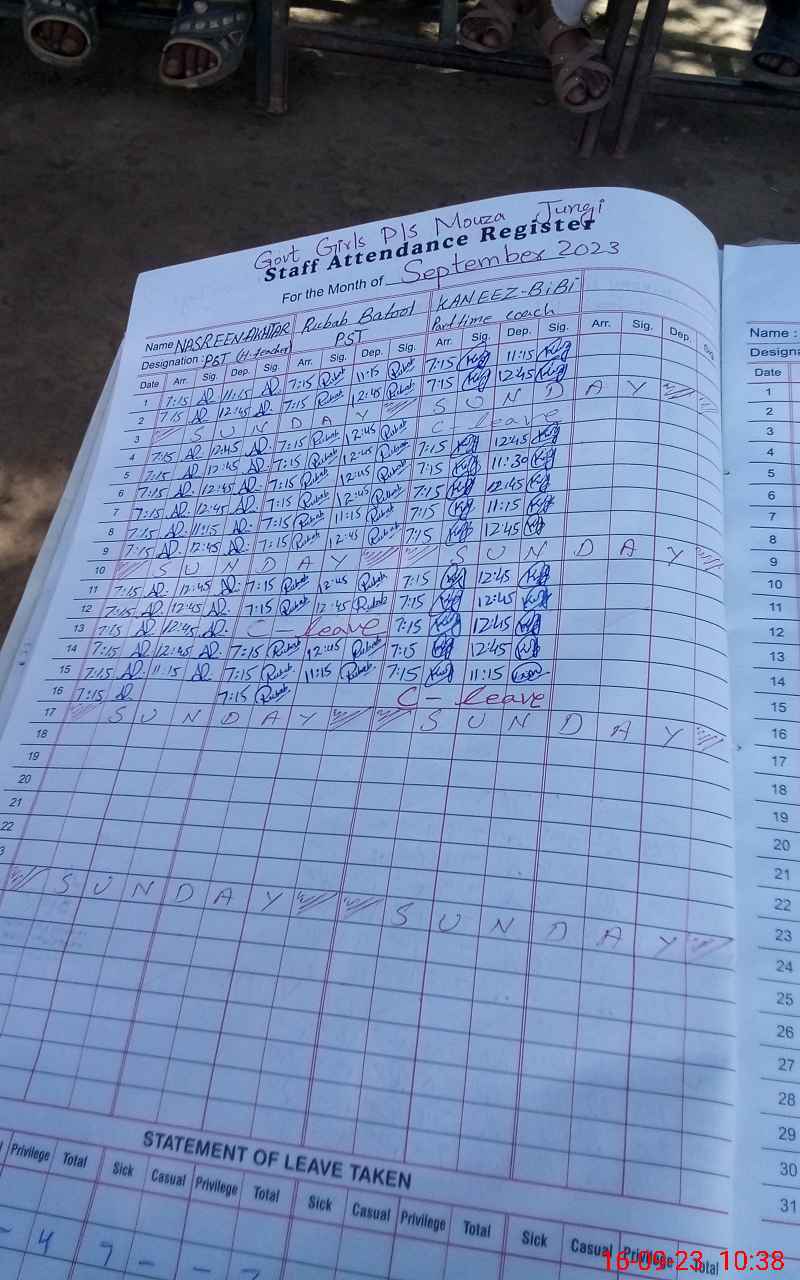 Govt Girls P/s Mouza Jungi
Staff Attendance Register
For the Month of September 2023
Name NASREEN AKHTAR Rubab Batool KANEEZ-BiBi
Designation: PST (H.teacher) PST Part time coach
Date Arr. Sig. Dep. Sig. Arr. Sig. Dep. Sig. Arr. Sig. Dep. Sig. Arr. Sig. Dep. Sig
1 7:15 11:15 7:15 Rubab 11:15 Rubab 7:15 11:15
2 7:15 12:45 7:15 Rubab 12:45 Rubab 7:15 12:45
3 SUNDAY SUNDAY
4 7:15 12:45 7:15 Rubab 12:45 Rubab C-leave
5 7:15 12:45 7:15 Rubab 12:45 Rubab 7:15 12:45
6 7:15 12:45 7:15 Rubab 12:45 Rubab 7:15 11:30
7 7:15 12:45 7:15 Rubab 12:45 Rubab 7:15 12:45
8 7:15 11:15 7:15 Rubab 11:15 Rubab 7:15 11:15
9 7:15 12:45 7:15 Rubab 12:45 Rubab 7:15 12:45
10 SUNDAY SUNDAY
11 7:15 12:45 7:15 Rubab 12:45 Rubab 7:15 12:45
12 7:15 12:45 7:15 Rubab 12:45 Rubab 7:15 12:45
13 7:15 12:45 C-leave 7:15 12:45
14 7:15 12:45 7:15 Rubab 12:45 Rubab 7:15 12:45
15 7:15 11:15 7:15 Rubab 11:15 Rubab 7:15 11:15
16 7:15 7:15 Rubab C-leave
17 SUNDAY SUNDAY
18
19
20
21
22
3
SUNDAY SUNDAY
STATEMENT OF LEAVE TAKEN
Privilege Total Sick Casual Privilege Total Sick Casual Privilege Total Sick Casual Privilege Total
4 7 - -
Name :
Designa
Date
1
2
3
4
5
6
7
8
9
10
11
12
13
14
15
16
17
18
19
20
21
22
23
24
25
26
27
28
29
30
31
16-09-23 10:38